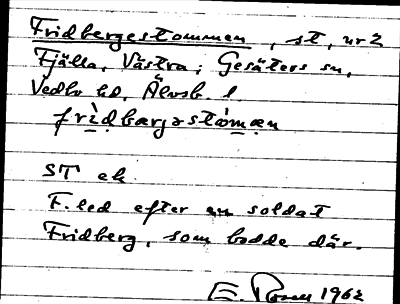 Fridbergestommen, st, nr 2
Fjälla, Västra; Gesäters sn,
Vedbo hd, Älvsb. l.
frìdbærjəstòmæn
ST ek
F. led efter en soldat
Fridberg, som bodde där.
E. Rosen 1962